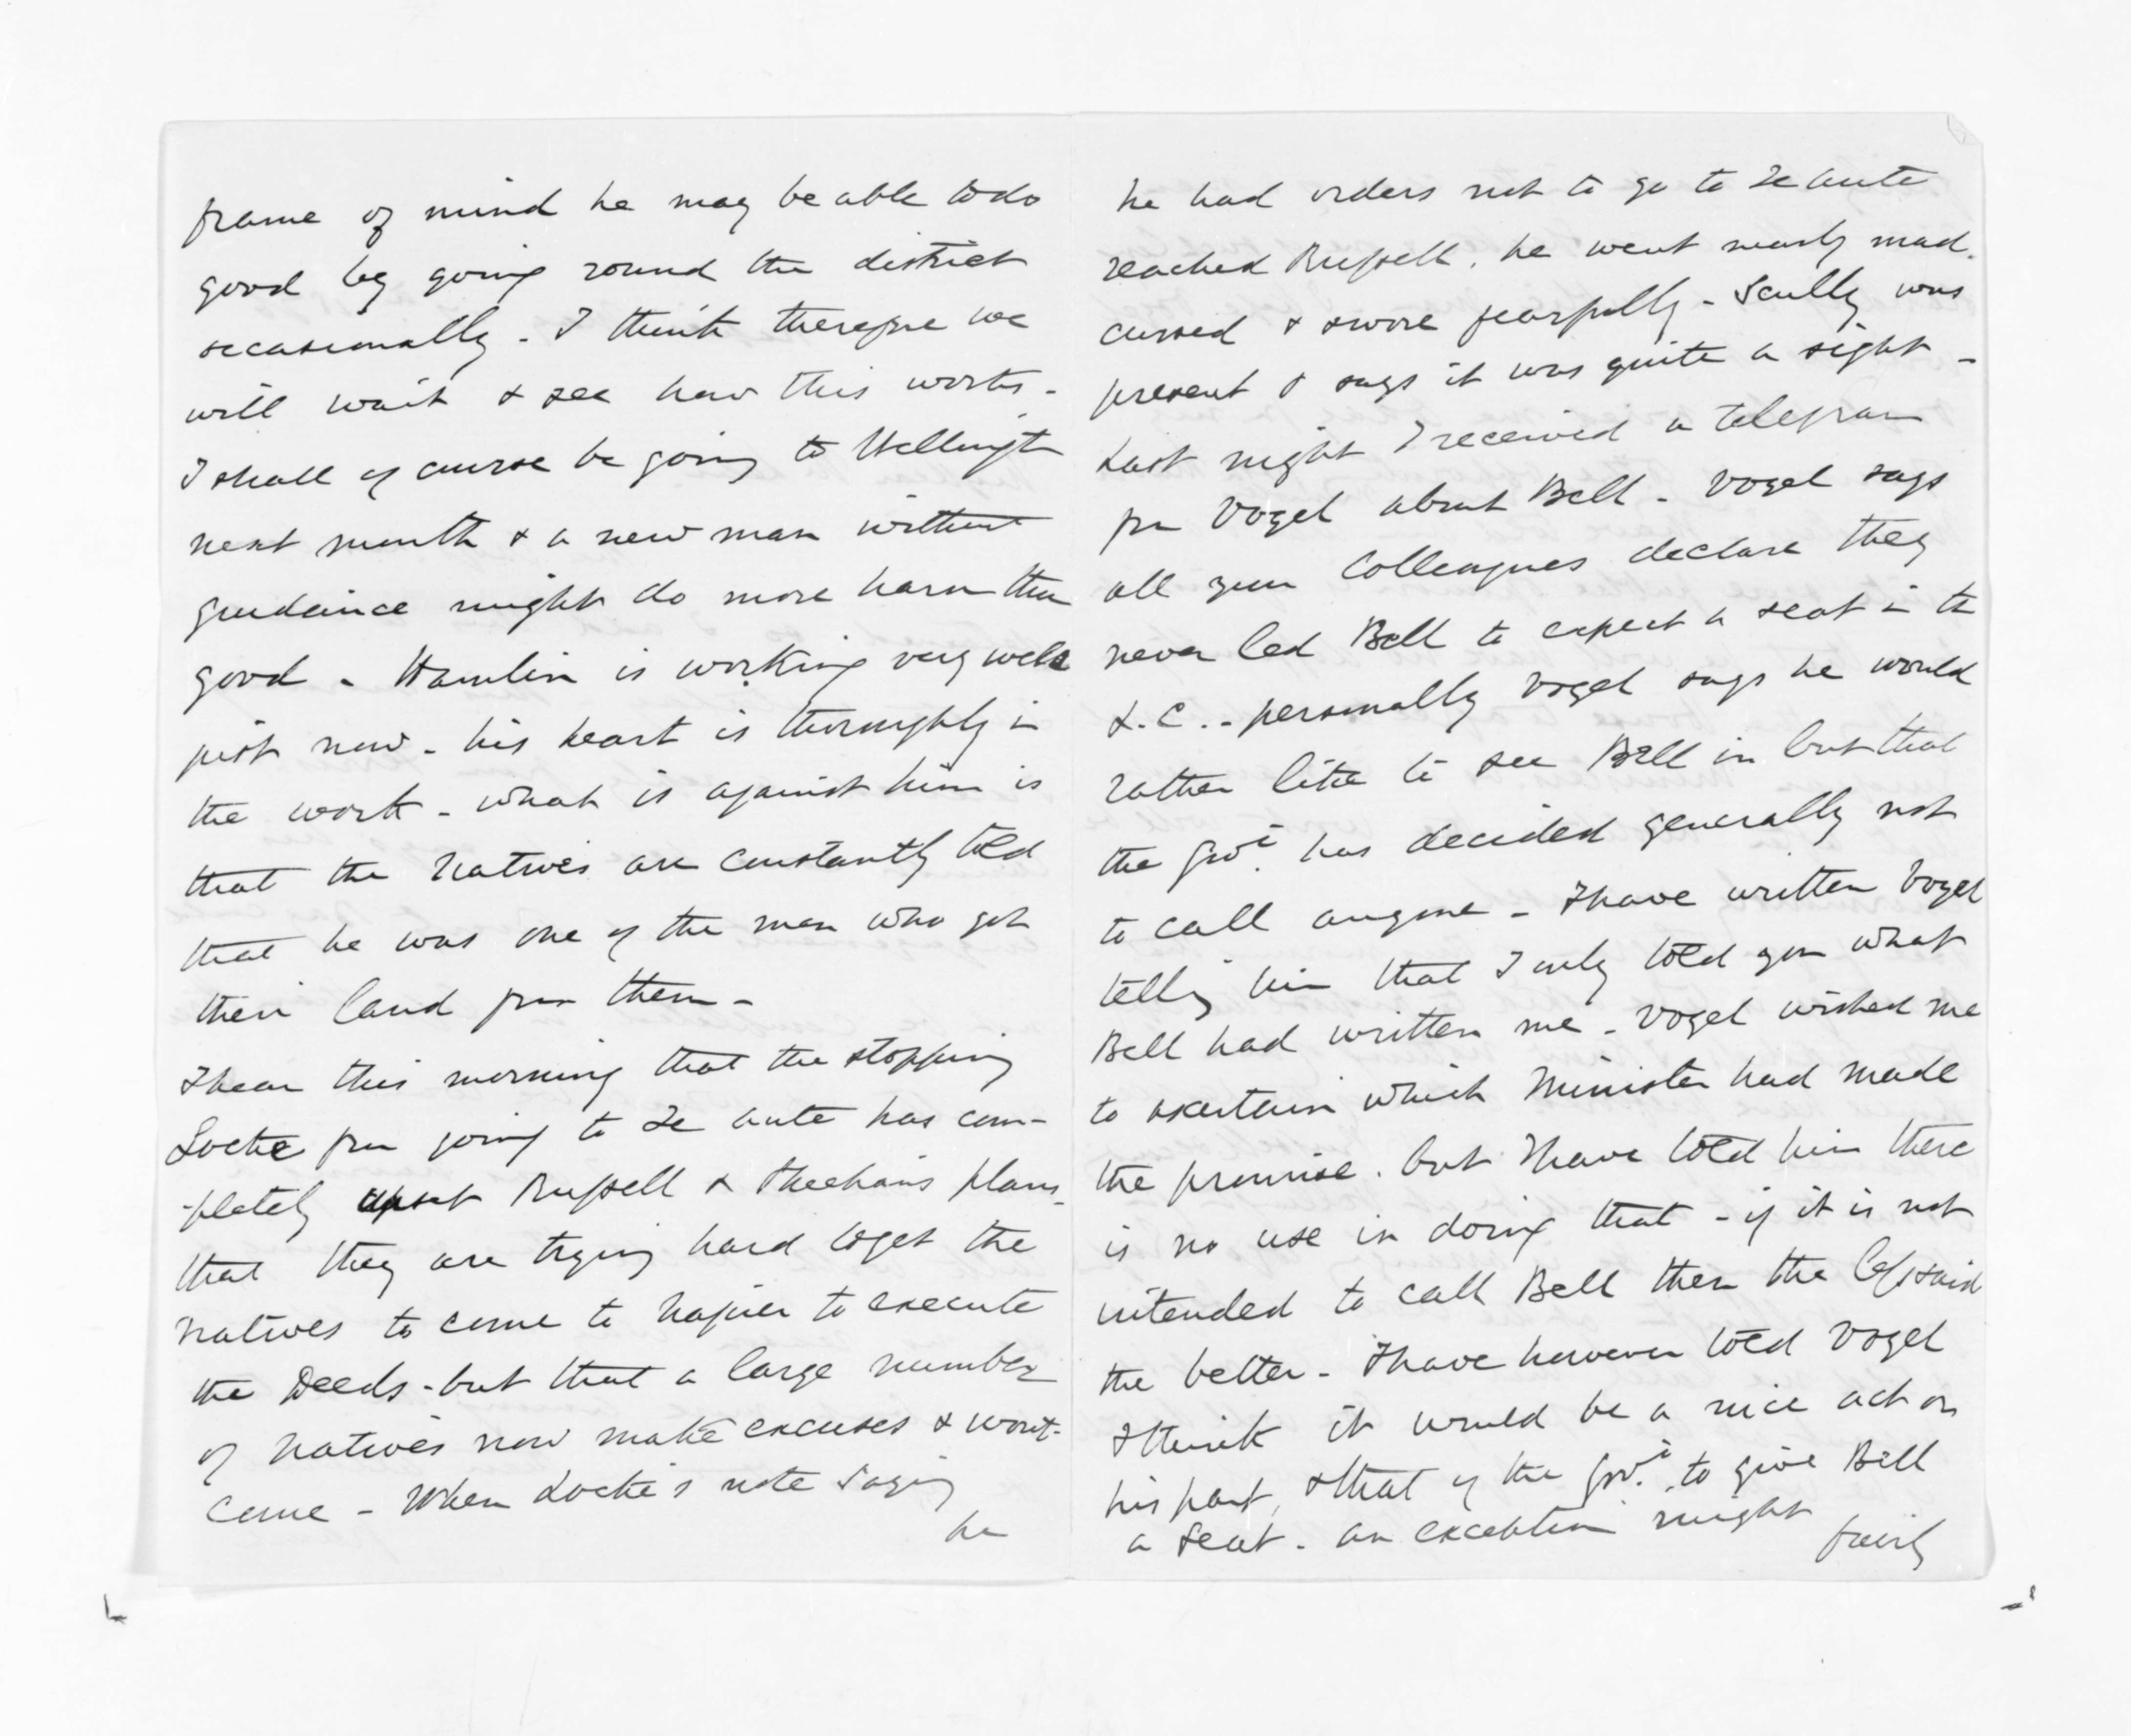 frame of mind he may be able to do
good by going round the district
occasionally - I think therefore we
will wait & see how this works -
I shall of course be going to Wellington
next month & a new man without
guidance might do more harm than
good - Hamlin is working very well
just now - his heart is thoroughly in
the work - what is against him is
that the Natives are constantly told
that he was one of the men who got
their land from them -
I hear this morning that the stopping
Locke from going to Te Aute has com-
-pletely upset Russell & Sheehan's plans -
that they are trying hard to get the
Natives to come to Napier to execute
the Deeds - but that a large number
of Natives now make excuses & wont -
come - When Locke's note saying
he
he had orders not to go to Te Aute
reached Russell, he went nearly mad.
cursed & swore fearfully - Scully was
present & says it was quite a sight -
Last night I received a telegram
from Vogel about Bell - Vogel says
all your Colleagues declare they
never led Bell to expect a seat in the
L.C. - personally Vogel says he would
rather like to see Bell in but that
the Govt. has decided generally not
to call anyone - I have written Vogel
telling him that I only told you what
Bell had written me - Vogel wished me
to ascertain which Minister had made
the promise. but I have told him there
is no use in doing that - if it is not
intended to call Bell then the less said
the better - I have however told Vogel
I think it would be a nice act on
his part, & that of the Govt. to give Bell
a seat - an exception might
fairly